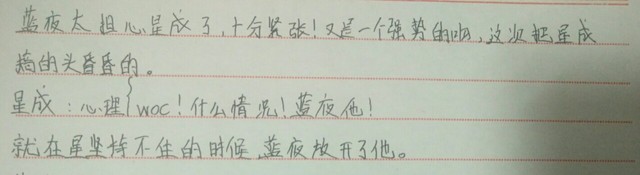 蓝夜太担心星成了，十分紧张！又是一个强势的吻，这次把星成
搞的头昏昏的。
星成：心理{woc！什么情况！蓝夜他！
就在星坚持不住的时候，蓝夜放开了他。